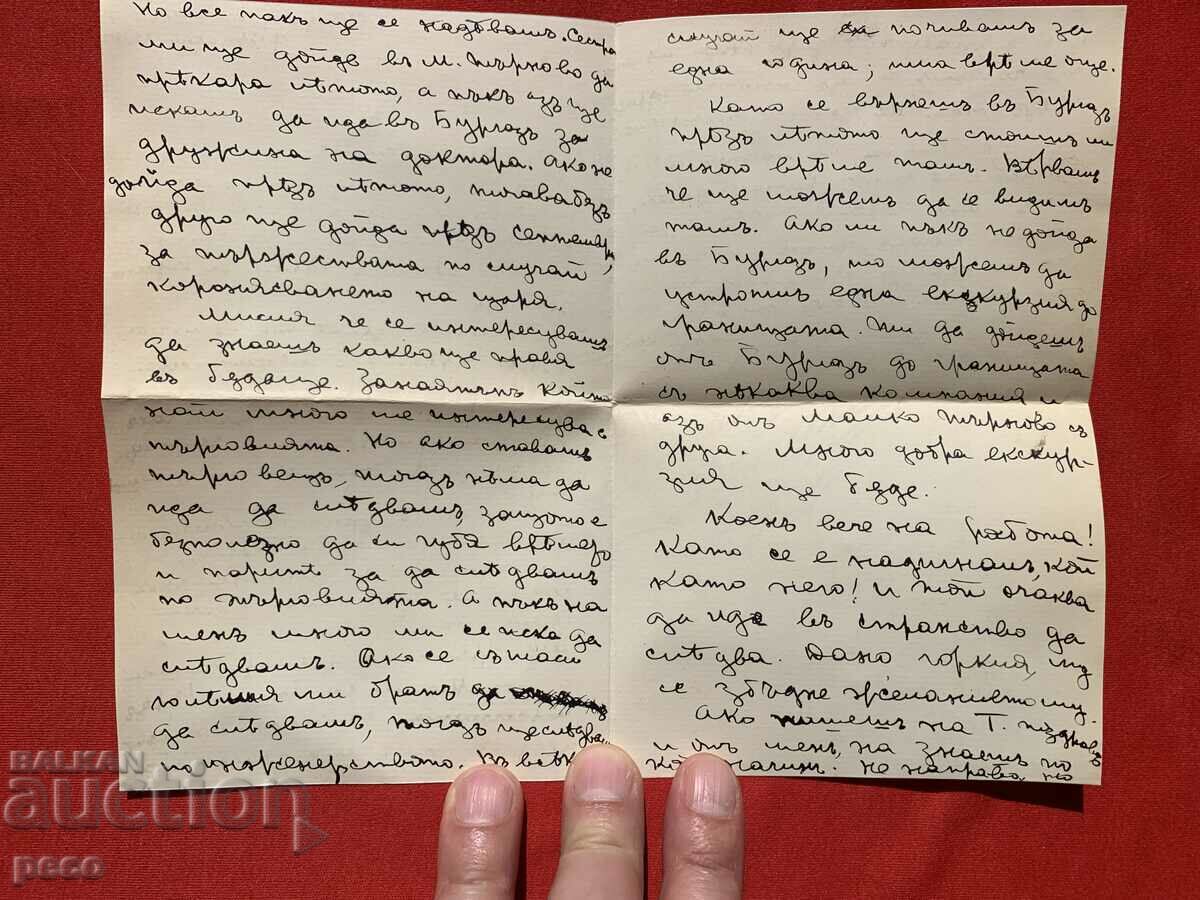 Но все пакъ ще се надѣвамъ. Сестра
ми ще дойде въ М. Търново да
прѣкара лѣтото, а пъкъ азъ ще
искамъ да ида въ Бургазъ за
дружина на доктора. Ако не
дойда прѣзъ лѣтото, тогава безъ
друго ще дойда прѣзъ септемврий,
за тържествата по случай
коронясването на царя.
Мисля че се интересувашъ
да знаешъ какво ще правя
въ бѫдѫще. Занаятътъ който
най много ме интересува е
търговията. Но ако ставамъ
търговецъ, тогазъ нѣма да
ида да слѣдвамъ, защото е
безполезно да си губя врѣмето
и паритѣ за да слѣдвамъ
по търговията. А пъкъ на
менъ много ми се иска да
слѣдвамъ. Ако се съгласи
големия ми братъ
да слѣдвамъ, тогазъ ще слѣдвамъ
по инженерството. Въ всѣк
случай ще почивамъ за
една година; има врѣме още.
Като се върнешъ въ Бургазъ
прѣзъ лѣтото ще стоишъ ли
много врѣме тамъ. Вѣрвамъ
че ще можемъ да се видимъ
тамъ. Ако ли пъкъ не дойда
въ Бургазъ, то можемъ да
устроимъ една екскурзия до
границата. Ти да дойдешъ
отъ Бургазъ до границата
съ нѣкаква компания и
азъ отъ Малко Търново съ
друга. Много добра екскур-
зия ще бѫде.
Коенъ вече на работа!
Като се е надигналъ, кой
като него! И той очаква
да иде въ странство да
слѣдва. Дано горкия, му
се збъдне желанието му.
Ако пишешъ на Т. поздрави
и отъ менъ, на знаешъ по
кой начинъ. Не направа по
BALKAN
auction
peco